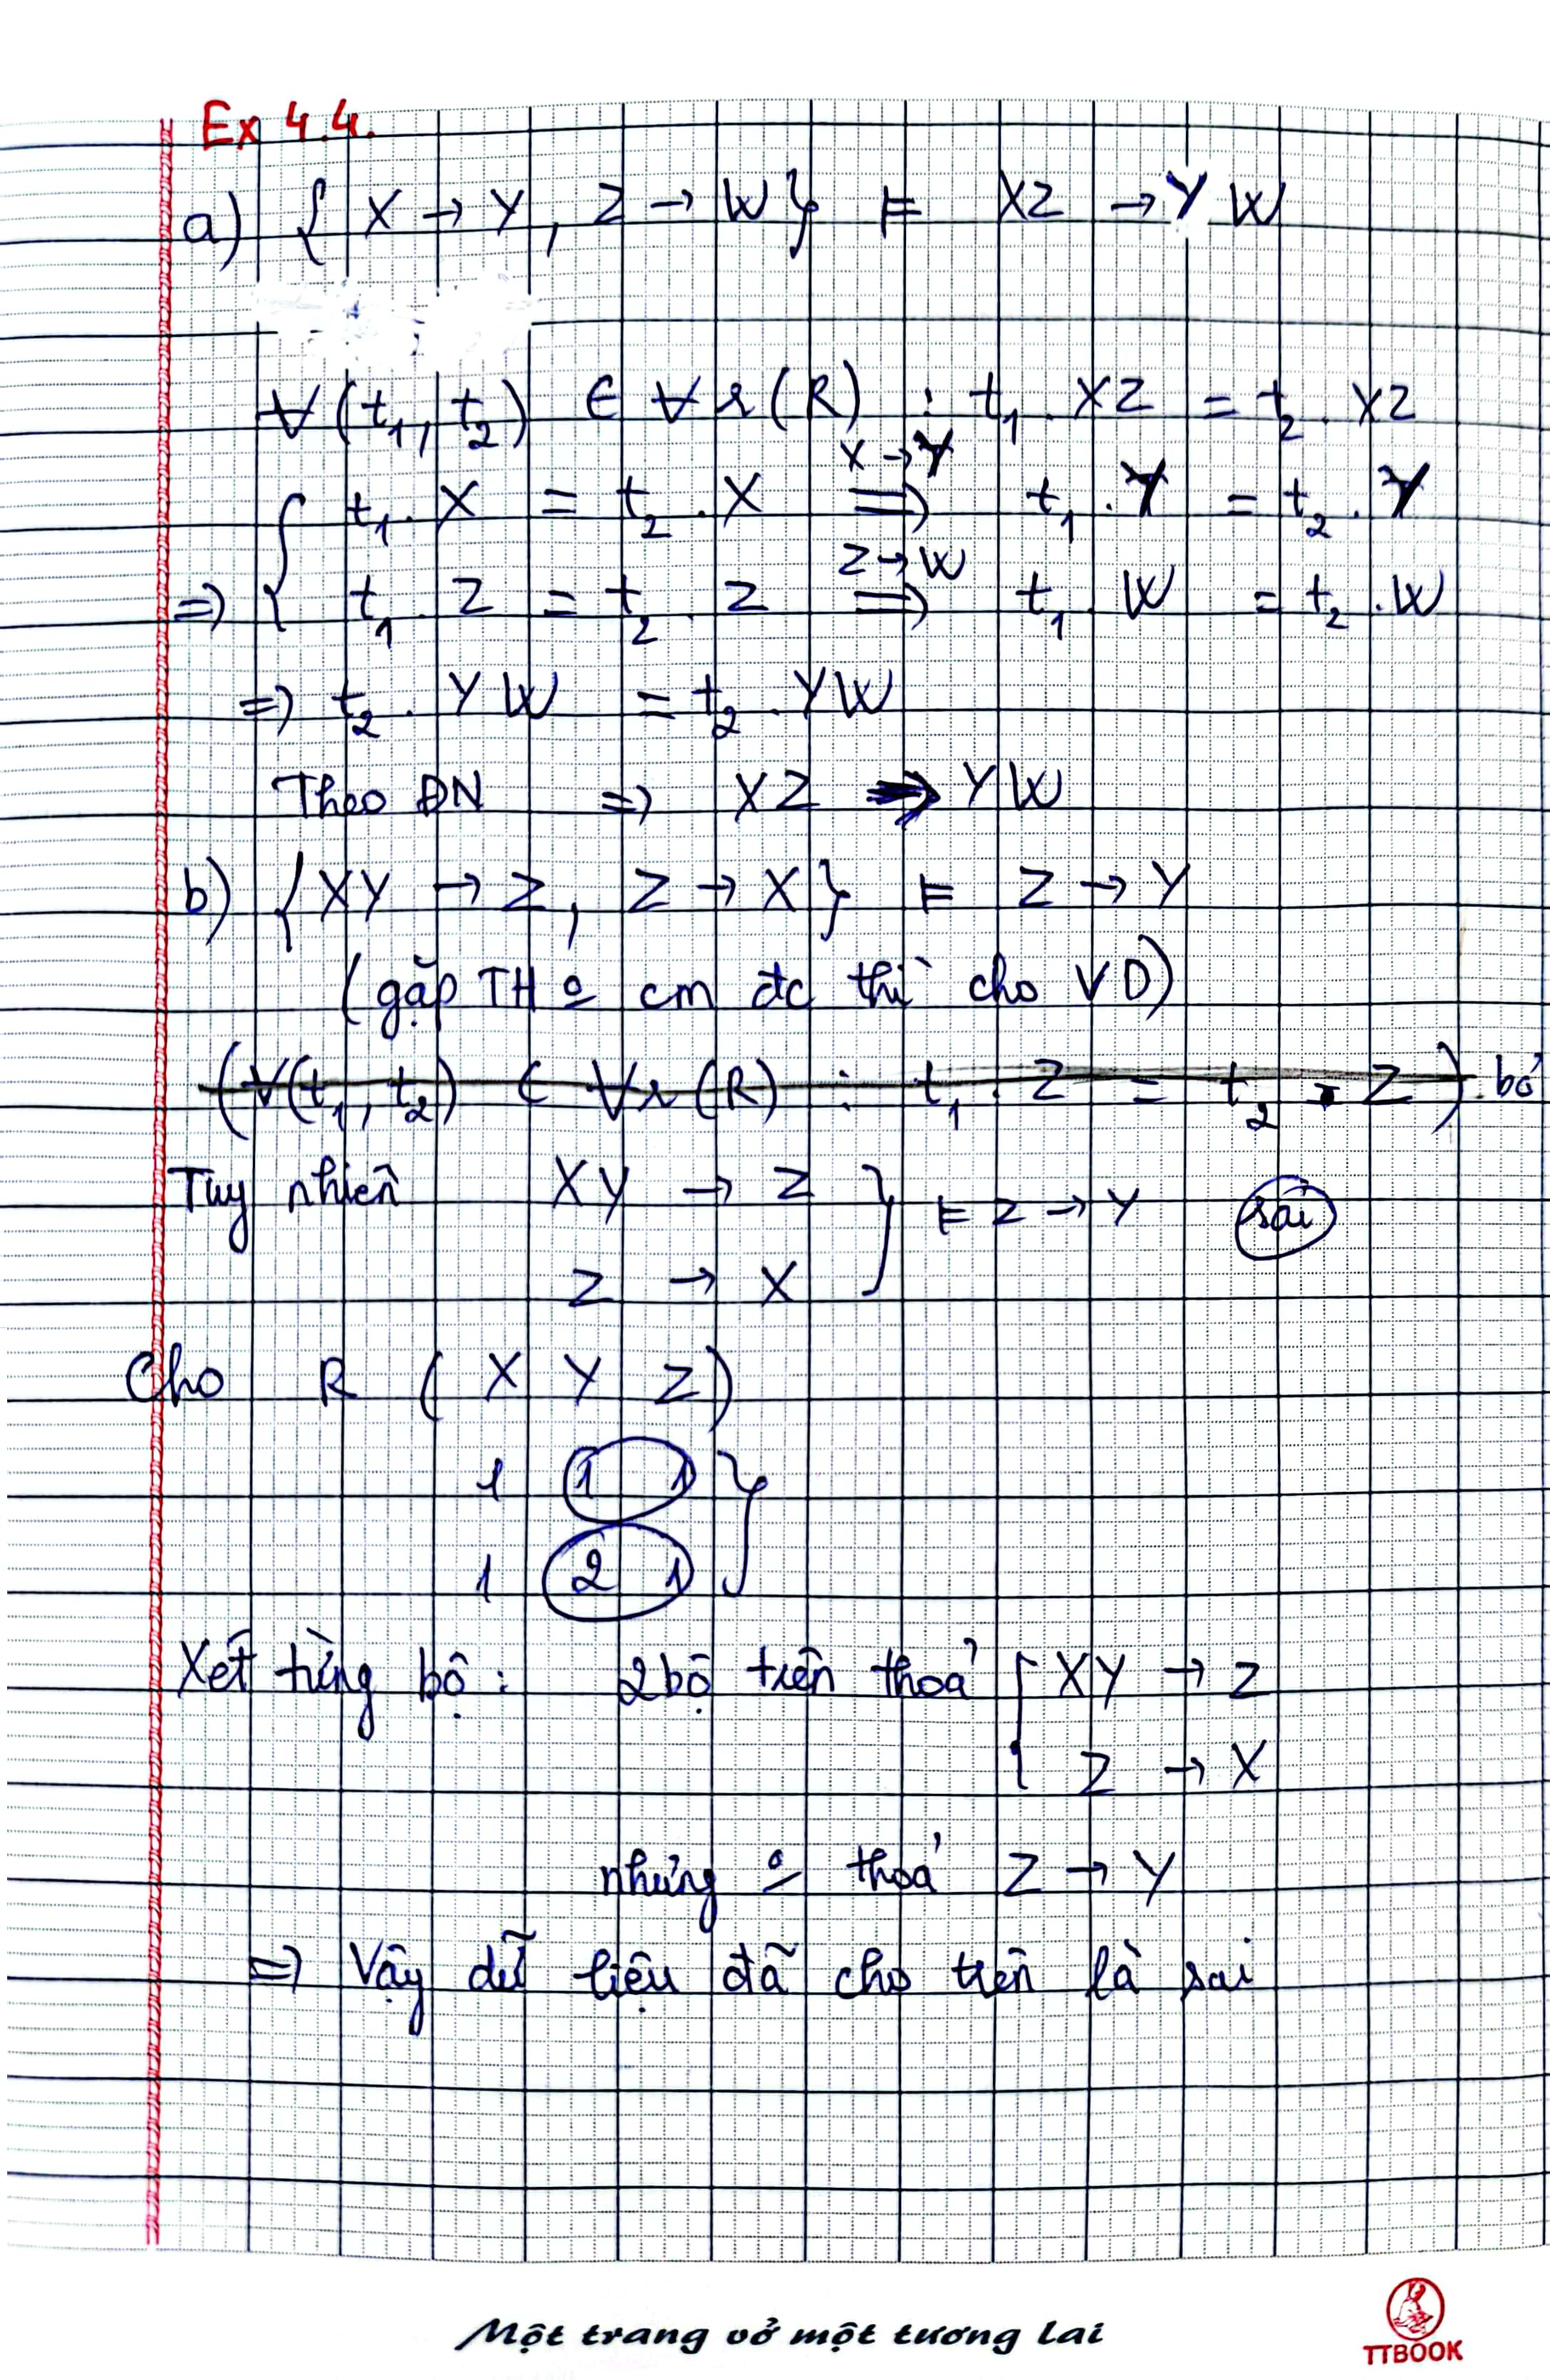 Ex 4.4.
a) { X → Y , Z → W } ⊨ XZ → YW
∀(t₁, t₂) ∈ ∀r(R) : t₁.XZ = t₂.XZ
X → Y
{ t₁.X = t₂.X ⇒ t₁.Y = t₂.Y
Z → W
⇒ { t₁.Z = t₂.Z ⇒ t₁.W = t₂.W
⇒ t₂.YW = t₂.YW
Theo ĐN ⇒ XZ → YW
b) { XY → Z, Z → X } ⊨ Z → Y
(gặp TH o cm đc thì cho VD)
(∀(t₁, t₂) ∈ ∀r(R) : t₁.Z = t₂.Z) bỏ
Tuy nhiên XY → Z } ⊨ Z → Y sai
Z → X
Cho R ( X Y Z )
1 1 1 }
1 2 1
Xét từng bộ : 2 bộ trên thoả { XY → Z
Z → X
nhưng o thoả Z → Y
⇒ Vậy dữ liệu đã cho trên là sai
Một trang vở một tương lai
TTBOOK